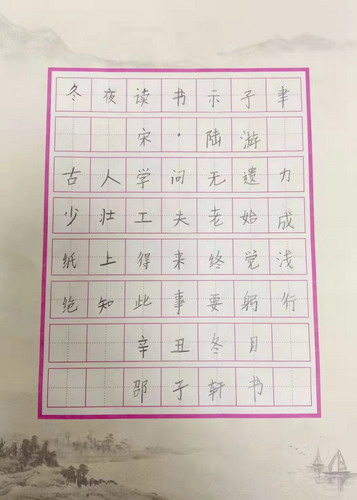 冬夜读书示子聿
宋·陆游
古人学问无遗力
少壮工夫老始成
纸上得来终觉浅
绝知此事要躬行
辛丑冬月
邵子轩书